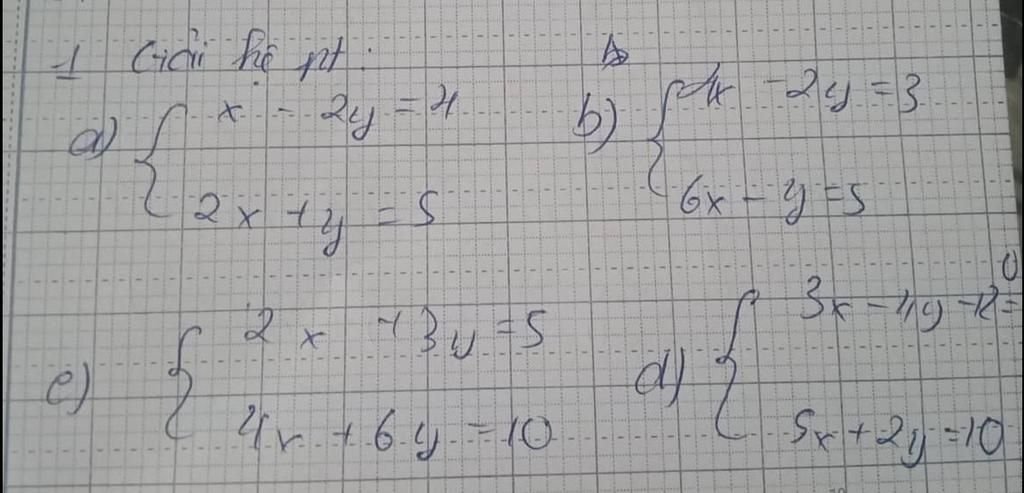 1 Giải hệ pt:
a) { x - 2y = 4
2x + y = 5
b) { x - 2y = 3
6x - y = 5
c) { 2x + 3y = 5
4x + 6y = 10
d) { 3x - 4y - 12 = 0
5x + 2y = 10